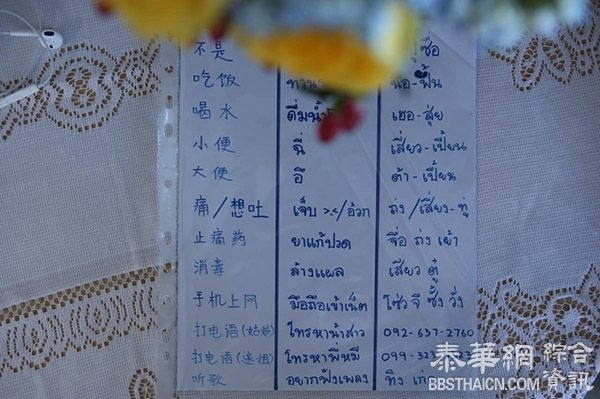 不是 ซื่อ
吃饭 ทาน ฉือ-ฟั้น
喝水 ดื่มน้ำ เฮอ-สุ่ย
小便 ฉี่ เสี่ยว-เปี้ยน
大便 อึ ต้า-เปี้ยน
痛/想吐 เจ็บ >.</อ้วก ถ่ง/เสี่ยง-ทู่
止痛药 ยาแก้ปวด จื่อ ถ่ง เย้า
消毒 ล้างแผล เสี่ยว ตู๋
手机上网 มือถือเข้าเน็ต โซ่ว จี ซั้ง วั่ง
打电话(姑姑) โทรหาน้าสาว 092-637-2760
打电话( 姐) โทรหาพี่หมี 099-323-
听歌 อยากฟังเพลง ทิง เก
泰華網 綜合資訊
BBSTHAICN.COM